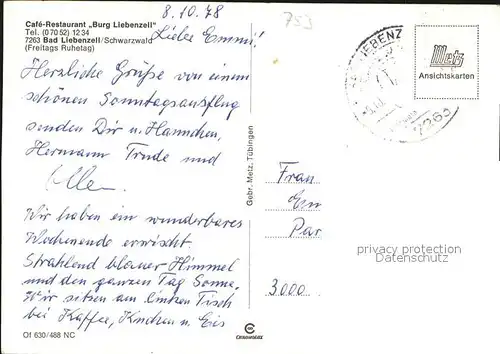 8.10.78
753
Café-Restaurant „Burg Liebenzell"
Tel. (07052) 1234
7263 Bad Liebenzell/Schwarzwald
(Freitags Ruhetag)
Liebe Emmi!
Herzliche Grüße von einem
schönen Sonntagsausflug
senden Dir u. Hannchen,
Hermann Trude und
Wir haben ein wunderbares
Wochenende erwischt.
Strahlend blauer Himmel
und den ganzen Tag Sonne.
Wir sitzen am Tisch
bei Kaffee, Kuchen u. Eis
Of 630/488 NC
Gebr. Metz, Tübingen
LIEBENZ
7263
Metz
Ansichtskarten
Frau
Em
Par
3000
privacy protection
Datenschutz